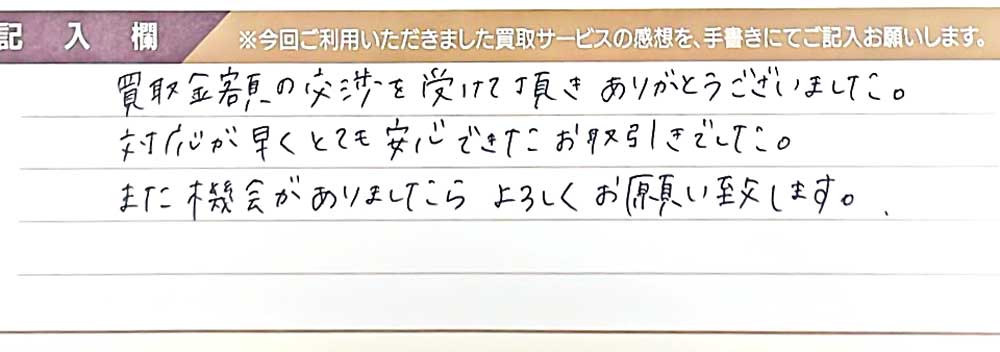 記入欄 ※今回ご利用いただきました買取サービスの感想を、手書きにてご記入お願いします。
買取金額の交渉を受けて頂きありがとうございました。
対応が早くとても安心できたお取引きでした。
また機会がありましたらよろしくお願い致します。